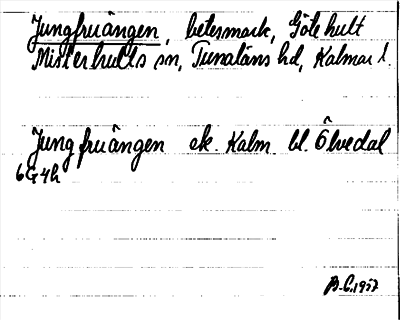 Jungfruängen, betesmark, Götehult
Misterhults sn, Tunaläns hd, Kalmar l.
Jungfruängen ek. Kalm. bl. Ölvedal
6G4h
B.C. 1957